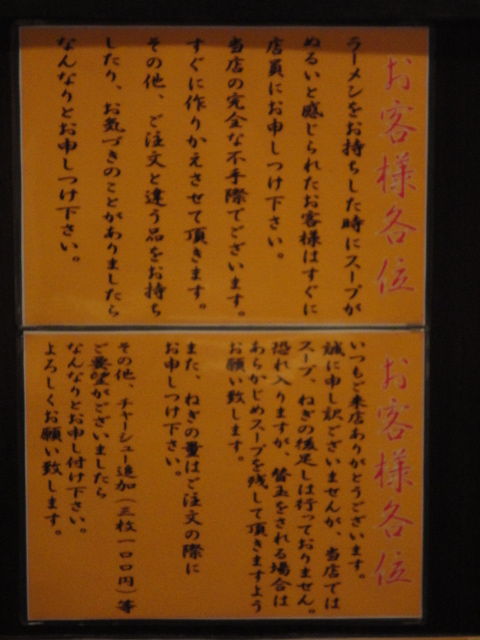 お客様各位
ラーメンをお持ちした時にスープが
ぬるいと感じられたお客様はすぐに
店員にお申しつけ下さい。
当店の完全な不手際でございます。
すぐに作りかえさせて頂きます。
その他、ご注文と違う品をお持ち
したり、お気づきのことがありましたら
なんなりとお申しつけ下さい。
お客様各位
いつもご来店ありがとうございます。
誠に申し訳ございませんが、当店では
スープ、ねぎの後足しは行っておりません。
恐れ入りますが、替玉をされる場合は
あらかじめスープを残して頂きますよう
お願い致します。
また、ねぎの量はご注文の際に
お申しつけ下さい。
その他、チャーシュー追加(三枚一〇〇円)等
ご要望がございましたら
なんなりとお申し付け下さい。
よろしくお願い致します。